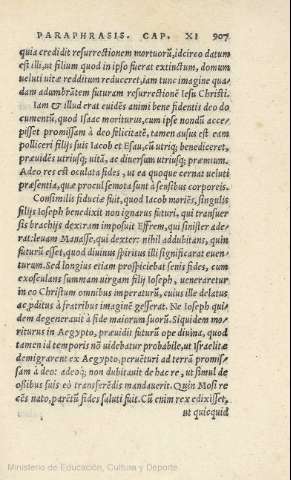 PARAPHRASIS. CAP. XI 907
quia credidit resurrectionem mortuorũ, idcirco datum
est illi, ut filium quod in ipso fuerat extinctum, domum
ueluti uitæ redditum reduceret, iam tunc imagine qua-
dam adumbrãtem futuram resurrectionẽ Iesu Christi.
Iam & illud erat euidẽs animi bene fidentis deo do
cumentũ, quod Isaac moriturus, cum ipse nondũ acce-
pisset promissam à deo fœlicitatẽ, tamen ausus est eam
polliceri filijs suis Iacob et Esau, cũ utriq; benediceret,
præuidẽs utriusq; uitã, ac diuersum utriusq; præmium.
Adeo res est oculata fides, ut ea quoque cernat ueluti
præsentia, quæ procul semota sunt à sensibus corporeis.
Consimilis fiduciæ fuit, quod Iacob moriẽs, singulis
filijs Ioseph benedixit non ignarus futuri, qui transuer
sis brachijs dexiram imposuit Effrem, qui sinister ade-
rat: leuam Manasse, qui dexter: nihil addubitans, quin
futurũ esset, quod diuinus spiritus illi significarat euen-
turum. Sed longius etiam prospiciebat senis fides, cum
exosculans summam uirgam filij Ioseph, ueneraretur
in eo Christum omnibus imperaturũ, cuius ille delatus
ac ꝓditus à fratribus imaginẽ gesserat. Ne Ioseph qui-
dem degenerauit à fide maiorum suorũ. Siquidem mo
riturus in Aegypto, præuidit futurũ ope diuina, quod
tamen id temporis nõ uidebatur probabile, ut Israelitæ
demigrarent ex Aegypto, peruẽturi ad terrã promis-
sam à deo: adeoq; non dubitauit de hac re, ut simul de
ossibus suis eò transferẽdis mandauerit. Quin Mosi re
cẽs nato, parẽtũ fides saluti fuit. Cũ enim rex edixisset,
ut quicquid
Ministerio de Educación, Cultura y Deporte